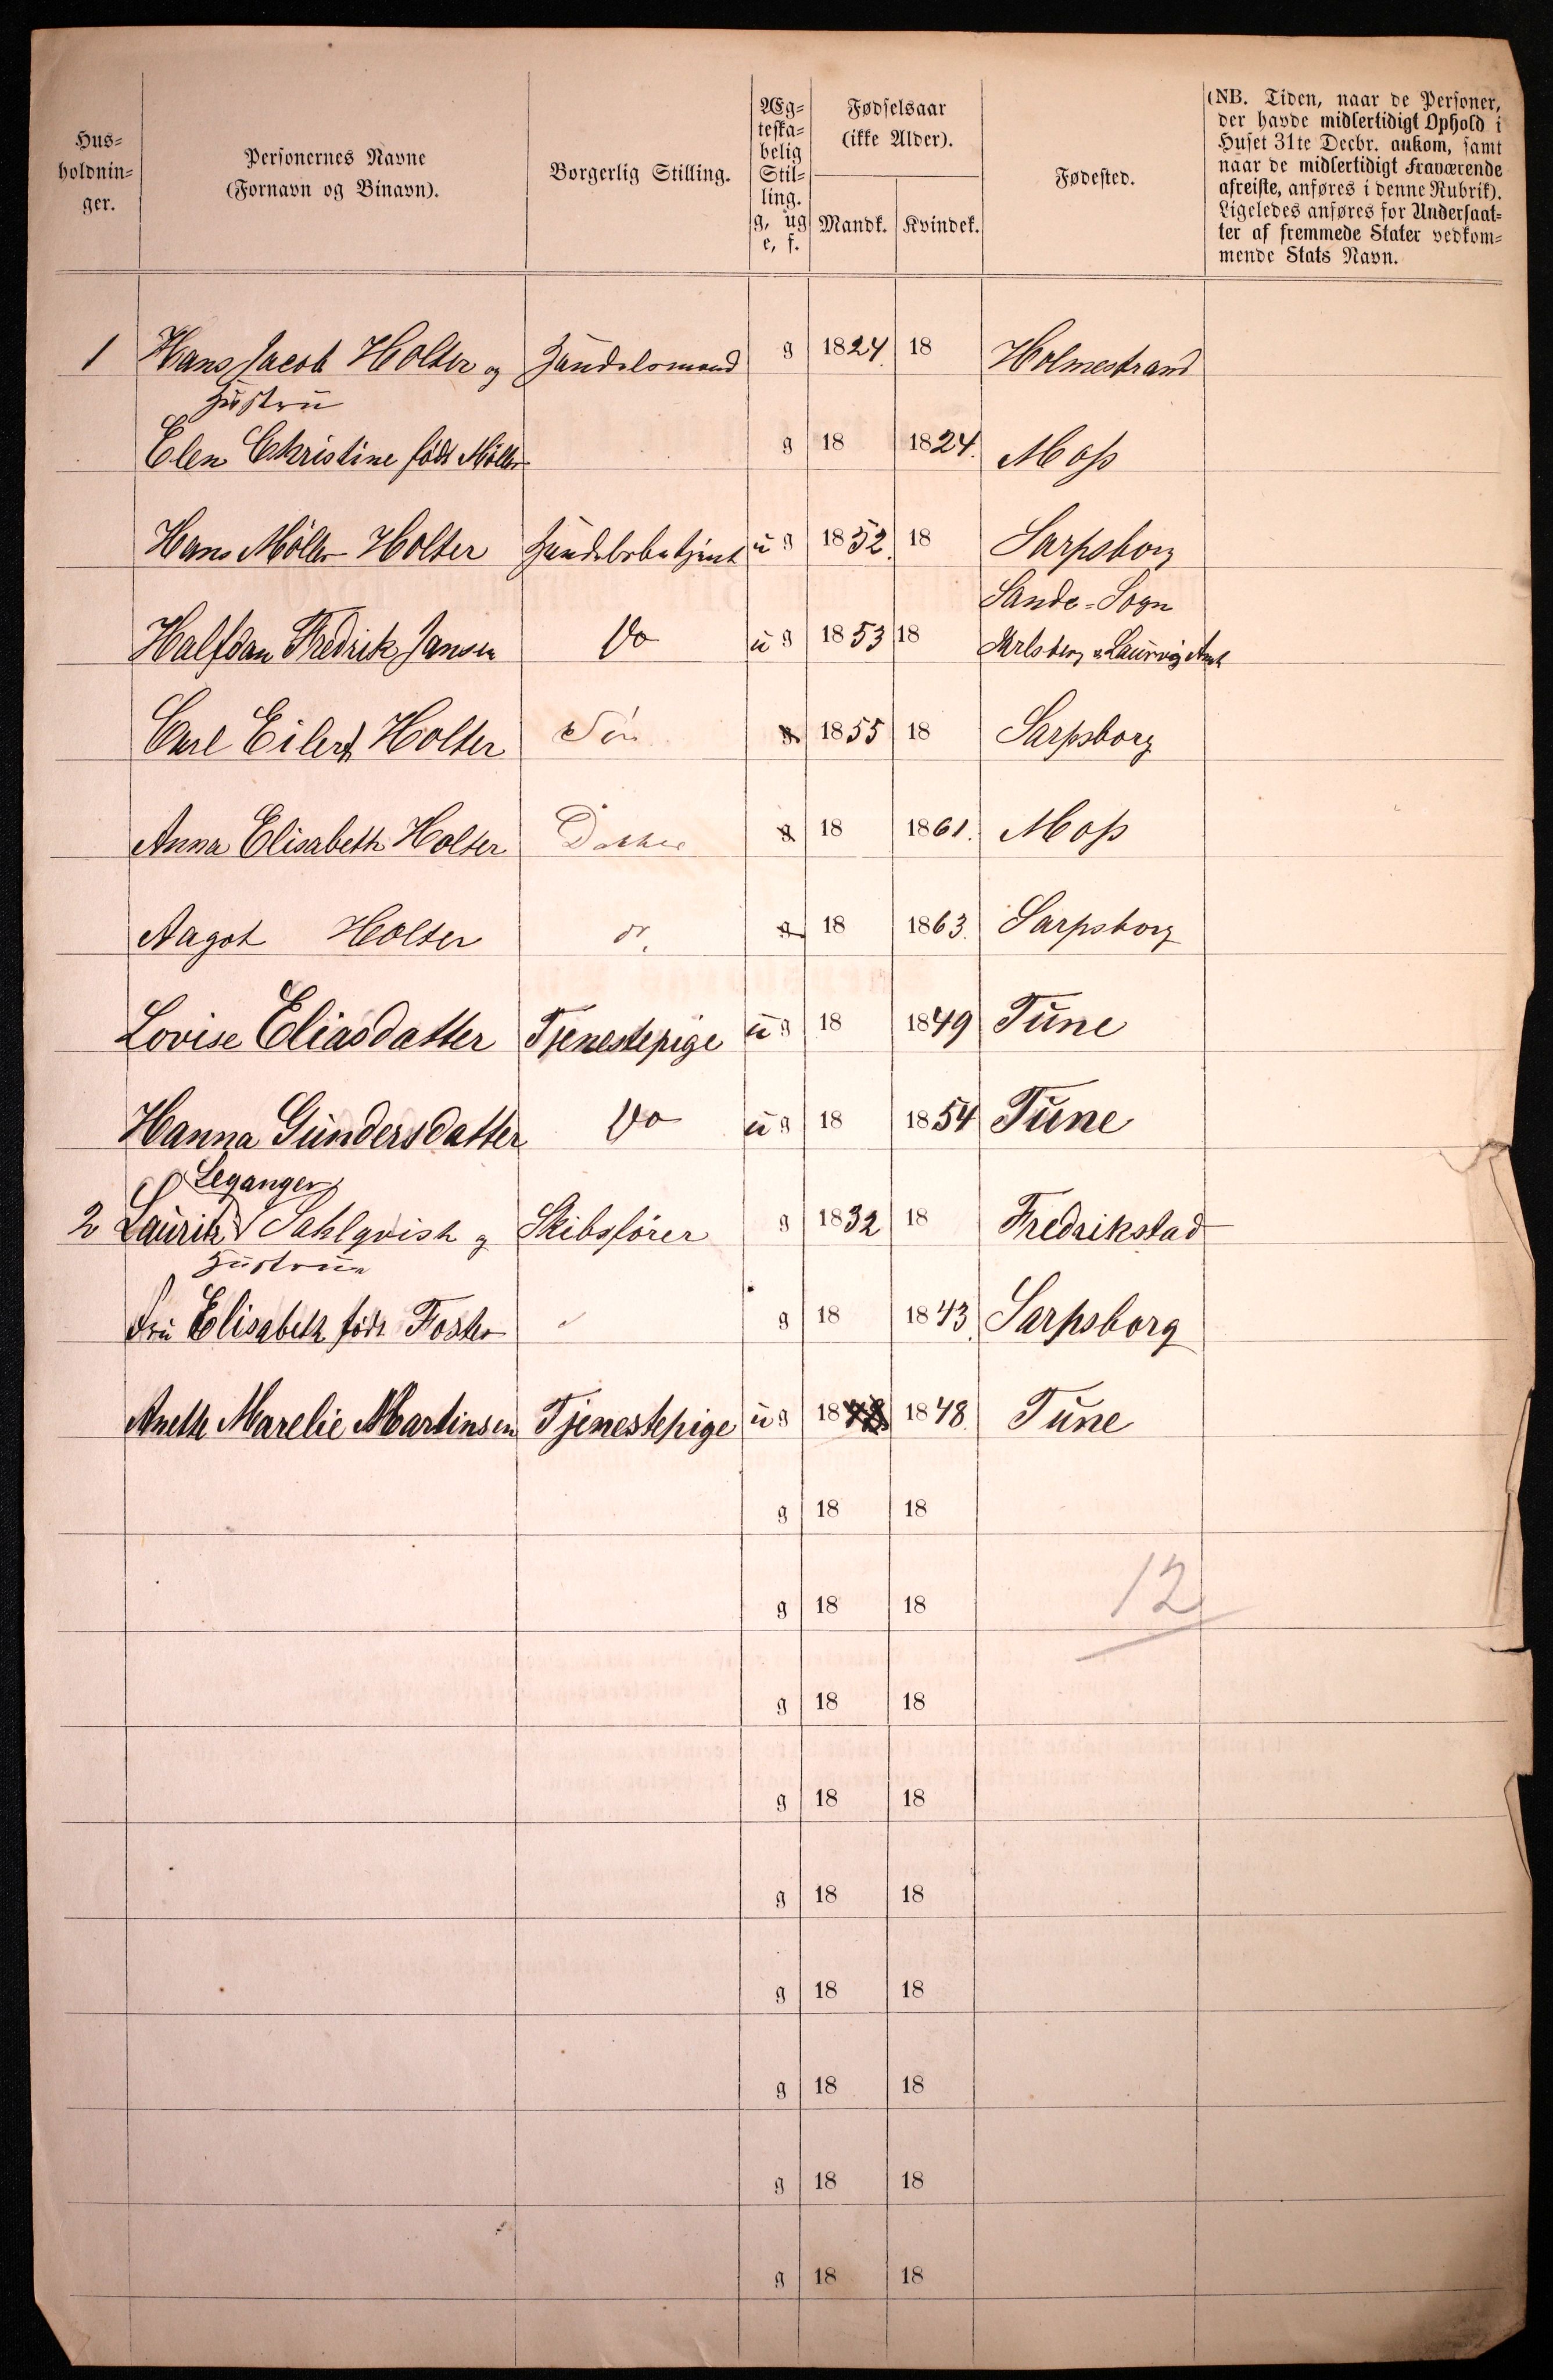 Hus-
holdnin-
ger.
Personernes Navne
(Fornavn og Binavn).
Borgerlig Stilling.
Æg-
teska-
belig
Stil-
ling.
g, ug
e, f.
Fødselsaar
(ikke Alder).
Mandk. Kvindek.
Fødested.
(NB. Tiden, naar de Personer,
der havde midlertidigt Ophold i
Huset 31te Decbr. ankom, samt
naar de midlertidigt Fraværende
afreiste, anføres i denne Rubrik).
Ligeledes anføres for Undersaat-
ter af fremmede Stater vedkom-
mende Stats Navn.
1 Hans Jacob Holter og Handelsmand g 1824. 18 Holmestrand
Hustru
Elen Christine födt Möller g 18 1824. Moss
Hans Möller Holter Handelsbetjent ug 1852. 18 Sarpsborg
Sande=Sogn
Halfdan Fredrik Jansen Do ug 1853 18 Jarlsberg & Laurvig Amt
Carl Eilert Holter Sön g 1855 18 Sarpsborg
Anna Elisabeth Holter Datter g 18 1861. Moss
Aagot Holter g 18 1863. Sarpsborg
Lovise Eliasdatter Tjenestepige ug 18 1849 Tune
Hanna Gundersdatter Do ug 18 1854 Tune
Leganger
2 Lauritz Sahlqvist og Skibsförer g 1832 18 Fredrikstad
Hustrue
Fru Elisabeth födt Foster g 18 1843. Sarpsborg
Anethe Marelie Martinsen Tjenestepige ug 1848 1848. Tune
g 18 18
g 18 18 12
g 18 18
g 18 18
g 18 18
g 18 18
g 18 18
g 18 18
g 18 18